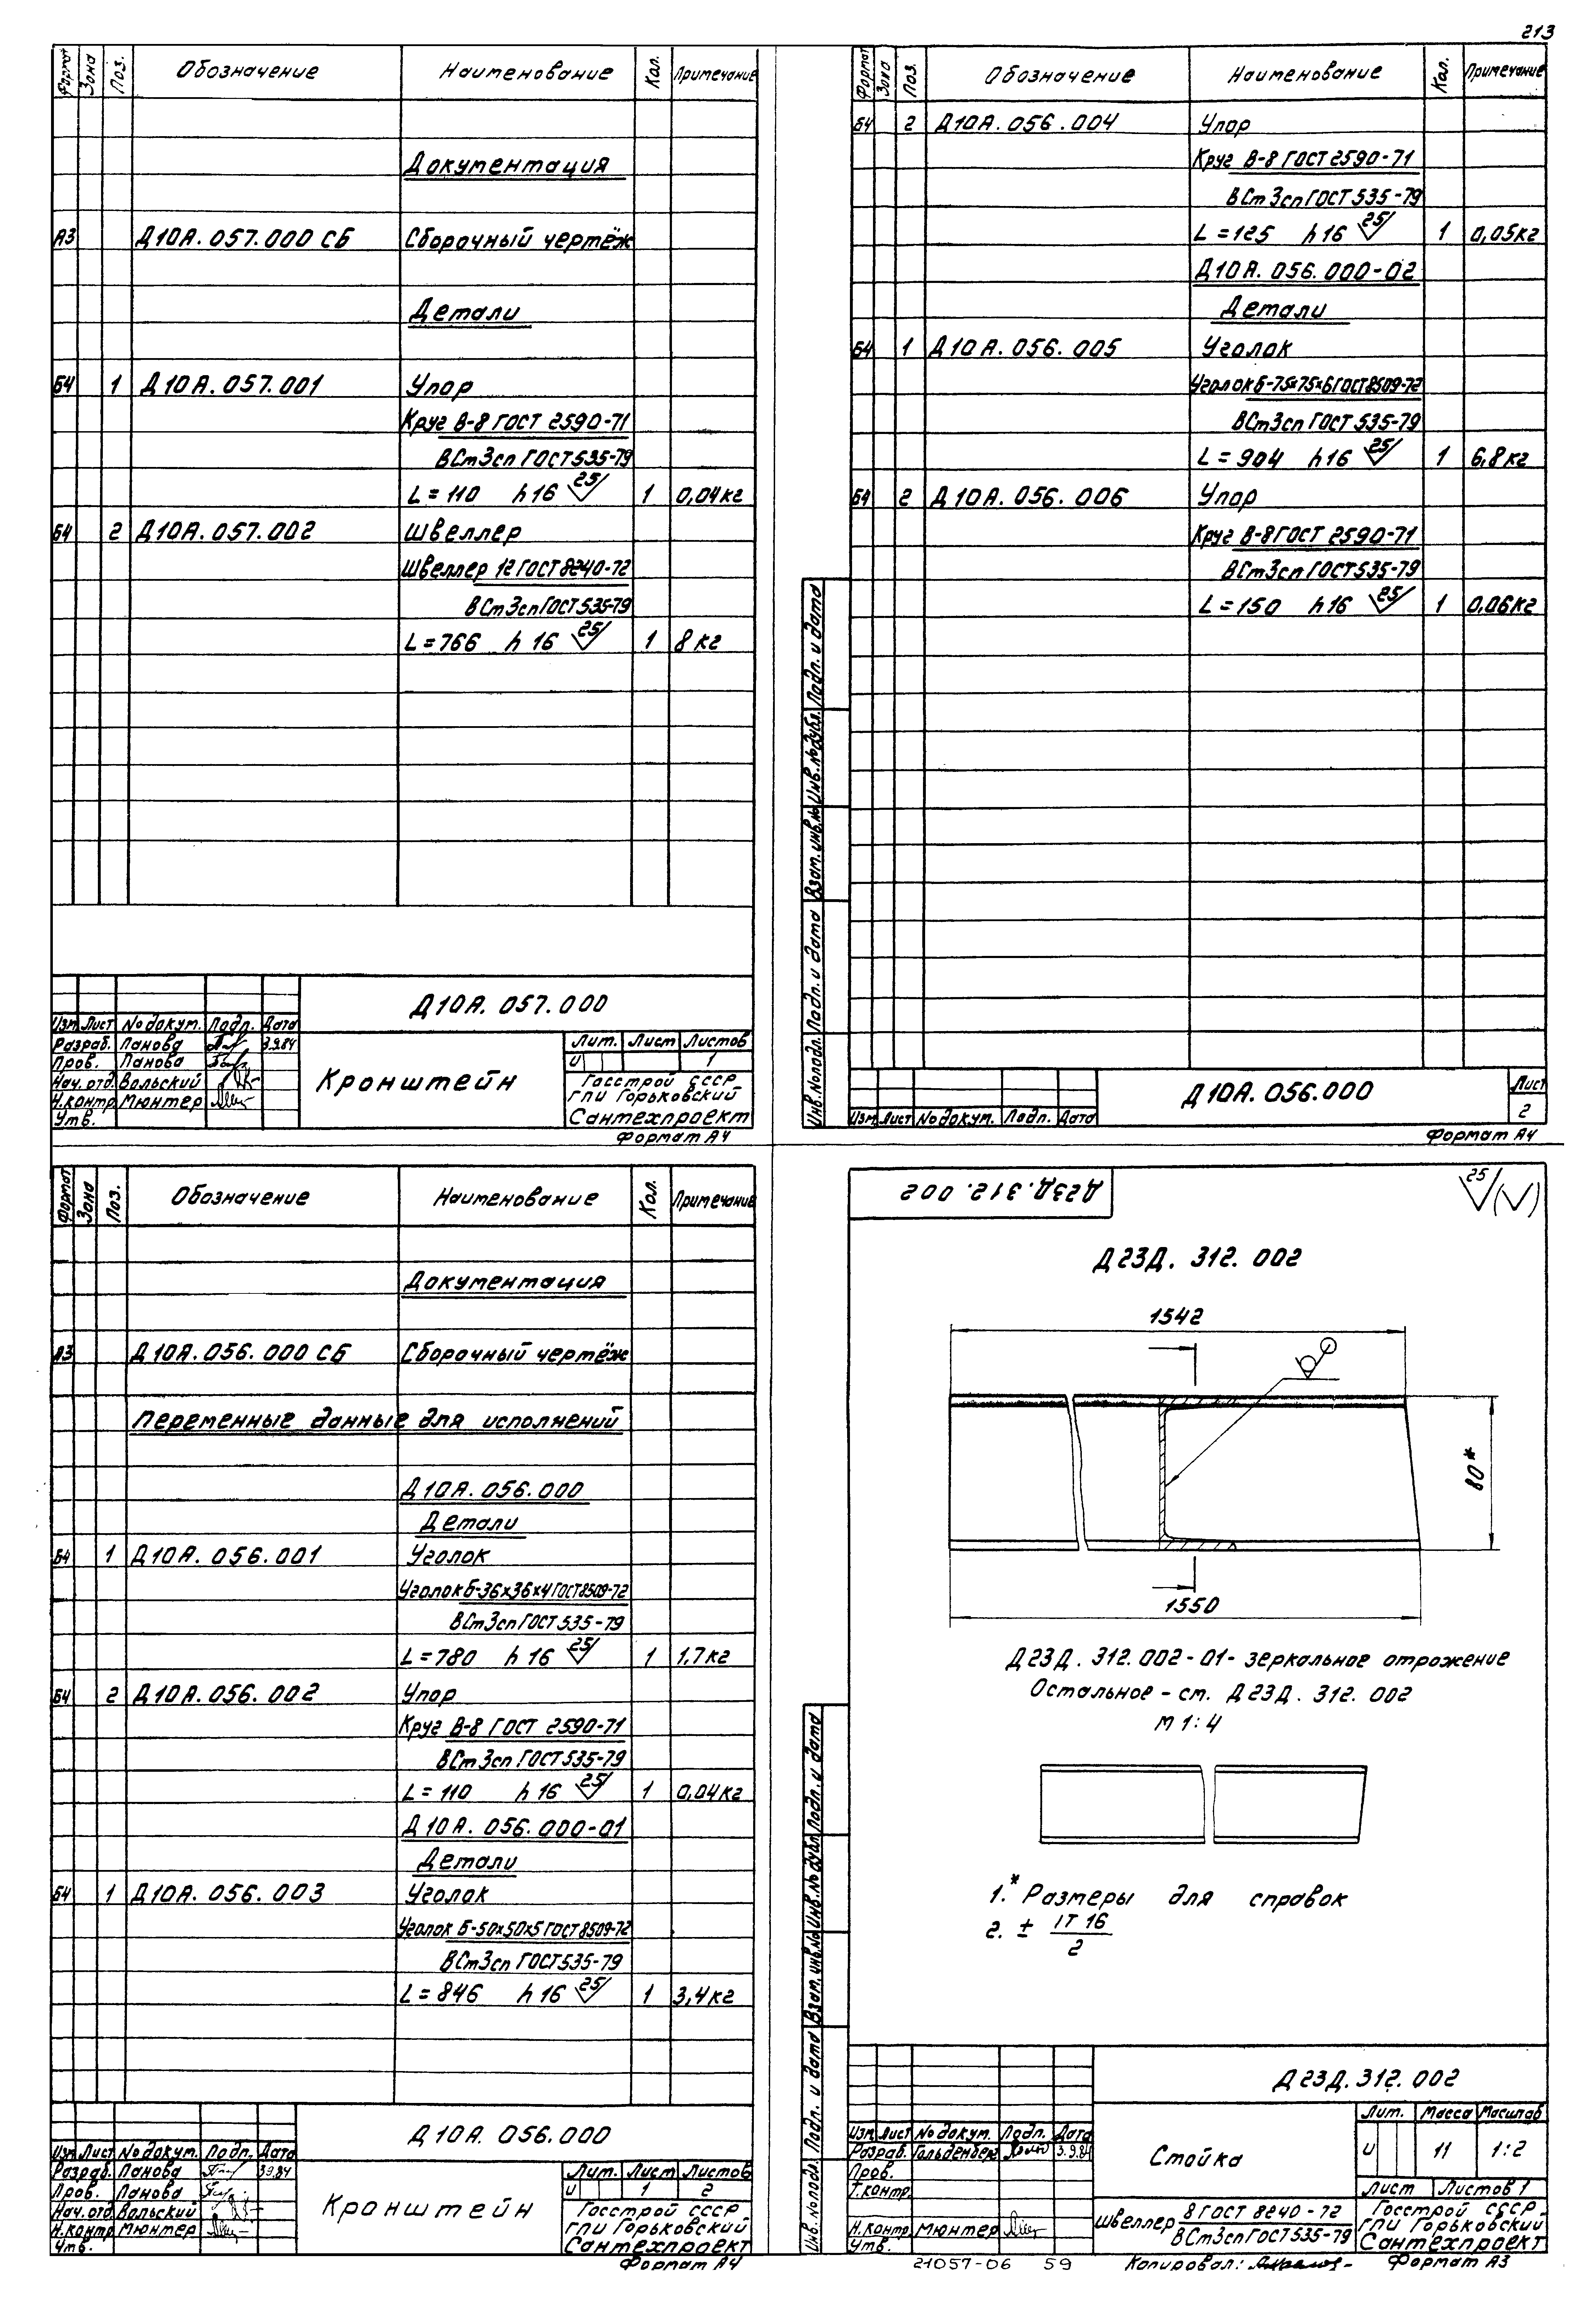 213
Формат Зона Поз. Обозначение Наименование Кол. Примечание
Документация
А3 Д10А.057.000 СБ Сборочный чертёж
Детали
Б4 1 Д10А.057.001 Упор
Круг В-8 ГОСТ 2590-71
ВСт3сп ГОСТ 535-79
L=110 h16 25 1 0,04кг
Б4 2 Д10А.057.002 Швеллер
Швеллер 12 ГОСТ 8240-72
ВСт3сп ГОСТ 535-79
L=766 h16 25 1 8кг
Д10А.057.000
Изм Лист № докум. Подп. Дата
Разраб. Панова 3.9.84
Пров. Панова
Нач. отд. Вольский
Н.контр Мюнтер
Утв.
Кронштейн
Лит. Лист Листов
И 1
Госстрой СССР
ГПИ Горьковский
Сантехпроект
Формат А4
Формат Зона Поз. Обозначение Наименование Кол. Примечание
Б4 2 Д10А.056.004 Упор
Круг В-8 ГОСТ 2590-71
ВСт3сп ГОСТ 535-79
L=125 h16 25 1 0,05кг
Д10А.056.000-02
Детали
Б4 1 Д10А.056.005 Уголок
Уголок Б-75х75х6 ГОСТ 8509-72
ВСт3сп ГОСТ 535-79
L=904 h16 25 1 6,8кг
Б4 2 Д10А.056.006 Упор
Круг В-8 ГОСТ 2590-71
ВСт3сп ГОСТ 535-79
L=150 h16 25 1 0,06кг
Инв. № подл. Подп. и дата Взам. инв. № Инв. № дубл. Подп. и дата
Изм Лист № докум. Подп. Дата
Д10А.056.000
Лист
2
Формат А4
Формат Зона Поз. Обозначение Наименование Кол. Примечание
Документация
А3 Д10А.056.000 СБ Сборочный чертёж
Переменные данные для исполнений
Д10А.056.000
Детали
Б4 1 Д10А.056.001 Уголок
Уголок Б-36х36х4 ГОСТ 8509-72
ВСт3сп ГОСТ 535-79
L=780 h16 25 1 1,7кг
Б4 2 Д10А.056.002 Упор
Круг В-8 ГОСТ 2590-71
ВСт3сп ГОСТ 535-79
L=110 h16 25 1 0,04кг
Д10А.056.000-01
Детали
Б4 1 Д10А.056.003 Уголок
Уголок Б-50х50х5 ГОСТ 8509-72
ВСт3сп ГОСТ 535-79
L=846 h16 25 1 3,4кг
Д10А.056.000
Изм Лист № докум. Подп. Дата
Разраб. Панова 3.9.84
Пров. Панова
Нач. отд Вольский
Н.контр Мюнтер
Утв.
Кронштейн
Лит. Лист Листов
И 1 2
Госстрой СССР
ГПИ Горьковский
Сантехпроект
Формат А4
Д23Д.312.002
25
Д23Д.312.002
1542
80*
1550
Д23Д.312.002-01- зеркальное отрожение
Остальное - см. Д23Д.312.002
М 1:4
1.* Размеры для справок
2. ± IT 16
2
Инв. № подл. Подп. и дата Взам. инв. № Инв. № дубл Подп. и дата
Д23Д.312.002
Изм Лист № докум. Подп. Дата
Разраб. Гольденберг 3.9.84
Пров.
Т.контр.
Н.контр Мюнтер
Утв.
Стойка
Лит. Масса Масштаб
И 11 1:2
Лист Листов 1
Швеллер 8 ГОСТ 8240-72
ВСт3сп ГОСТ 535-79
Госстрой СССР
ГПИ Горьковский
Сантехпроект
21057-06 59 Копировал: Формат А3